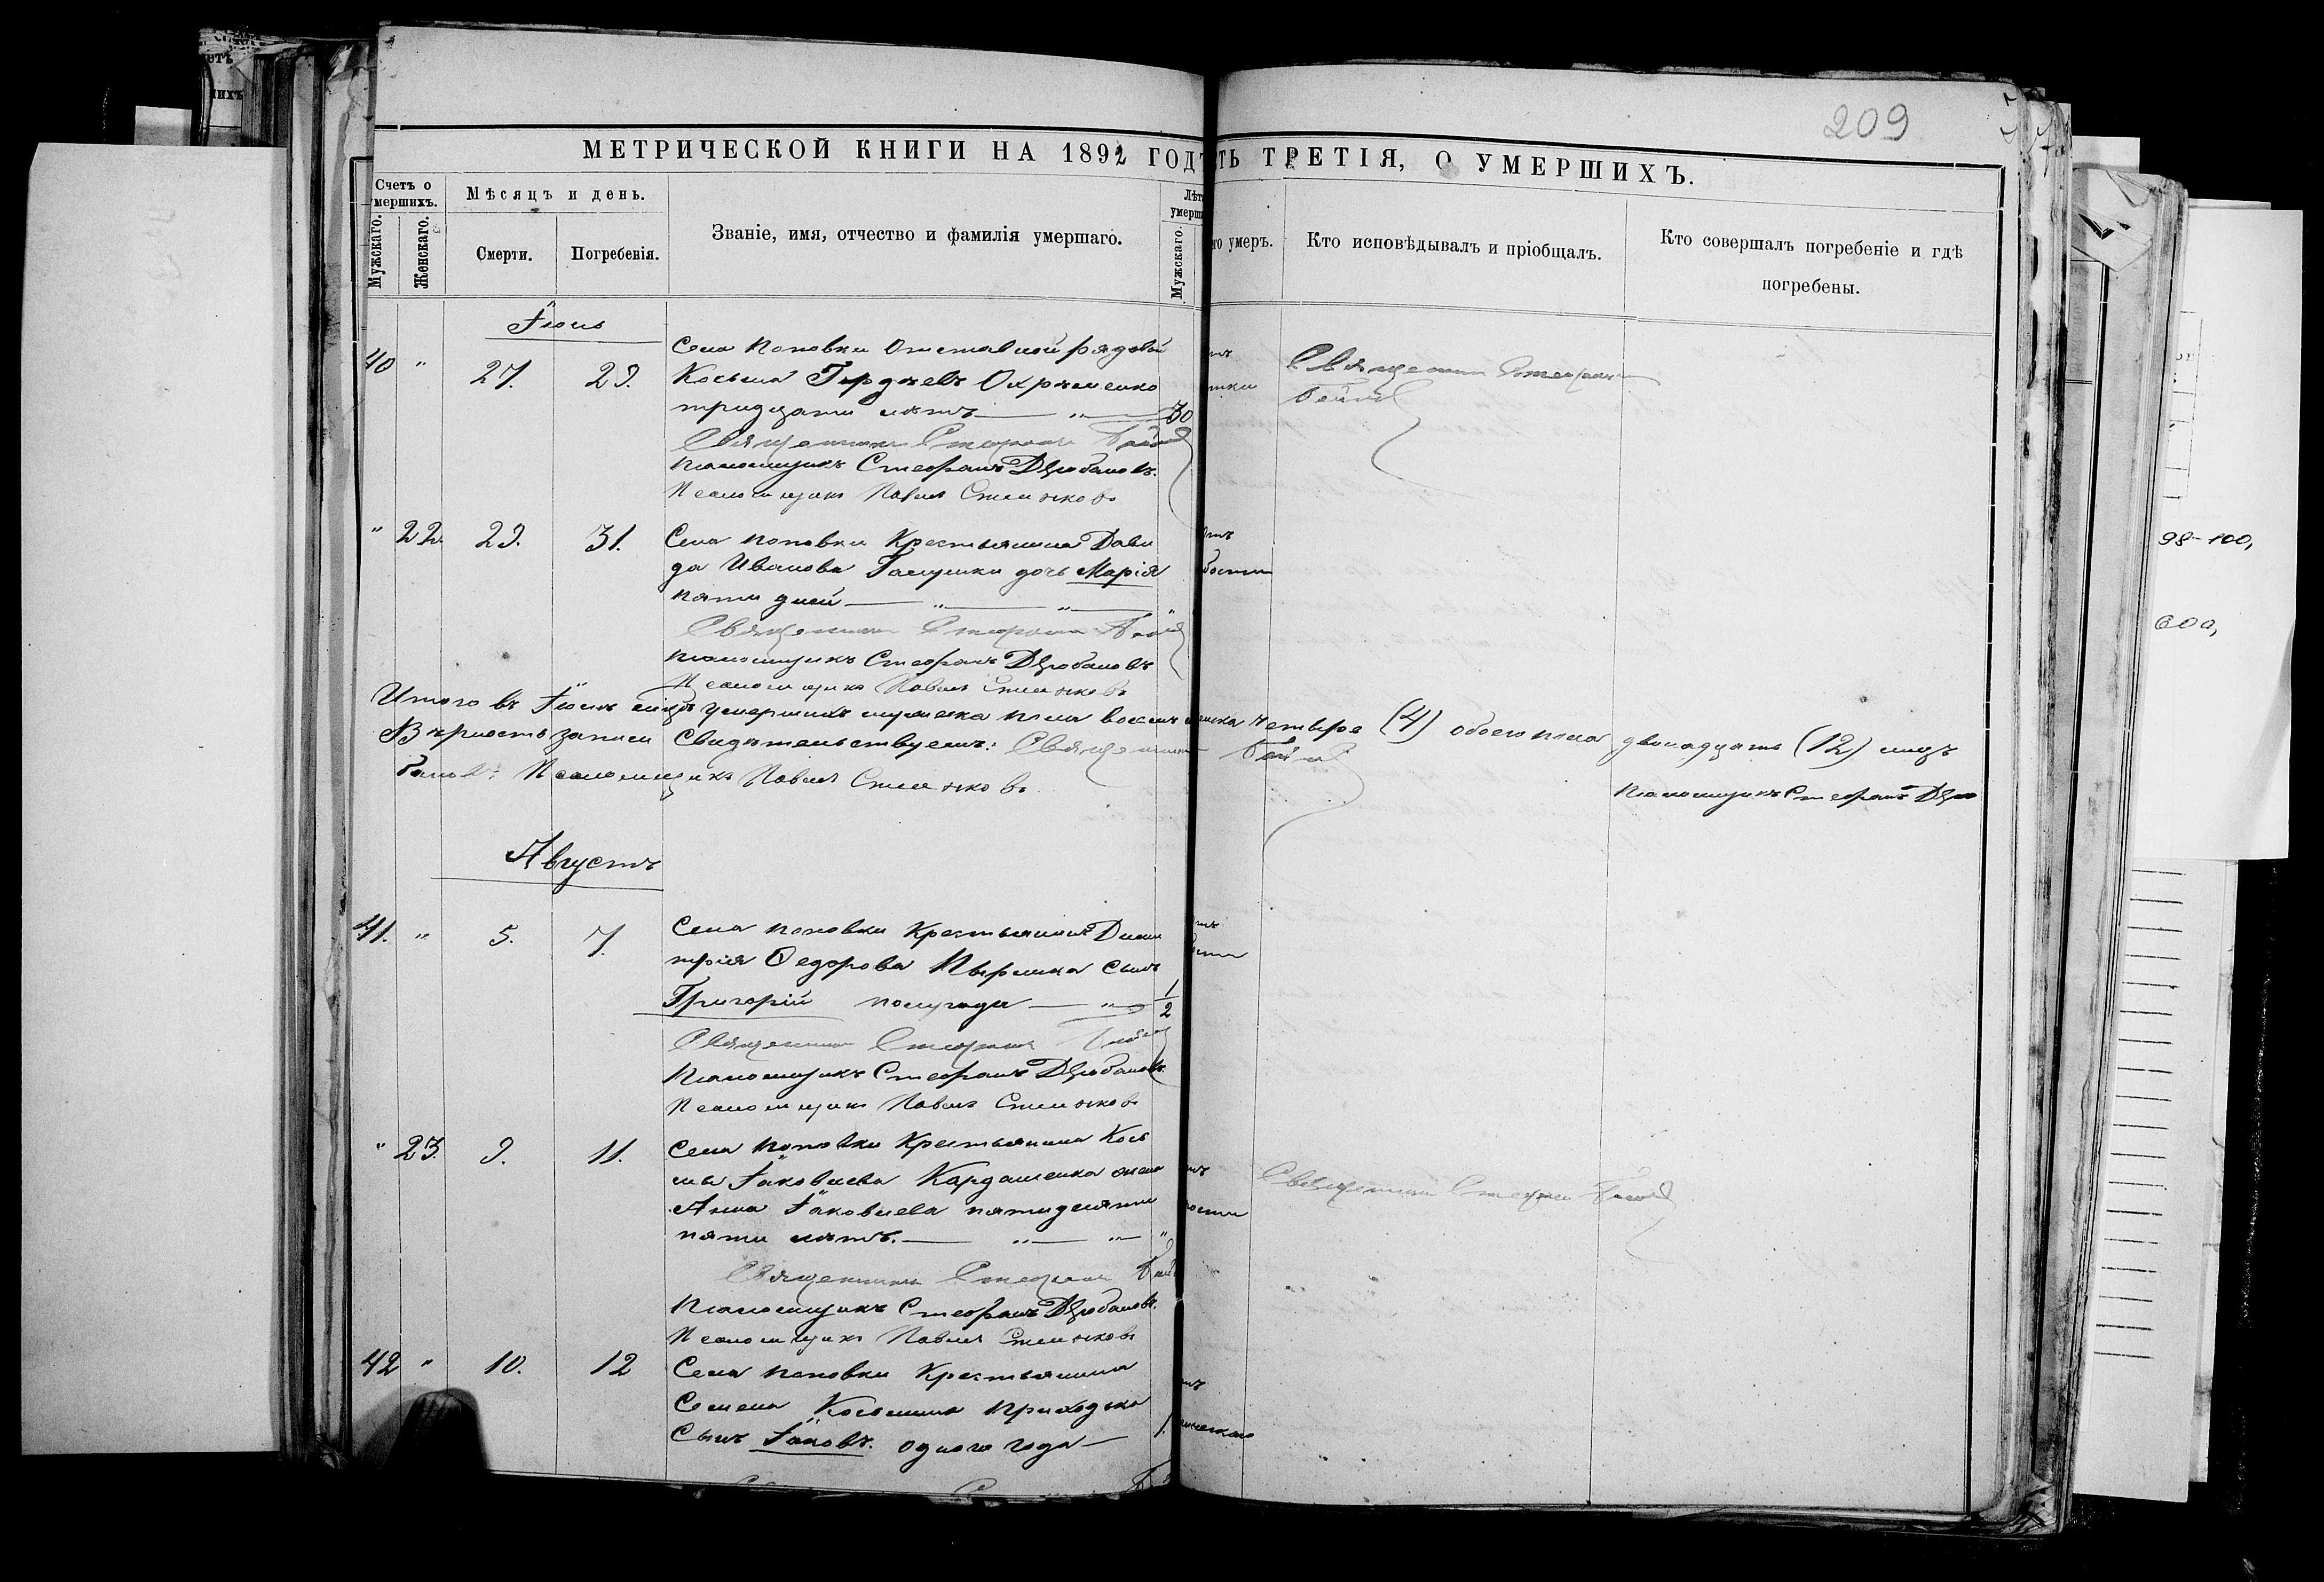 209
МЕТРИЧЕСКОЙ КНИГИ НА 1892 ГОДЪ
ТЬ ТРЕТІЯ, О УМЕРШИХЪ.
Счетъ о
умершихъ.
Мужскаго.
Женскаго.
Мѣсяцъ и день.
Смерти.
Погребенія.
Званіе, имя, отчество и фамилія умершаго.
Лѣт
умерш
Мужскаго.
го умеръ.
Кто исповѣдывалъ и пріобщалъ.
Кто совершалъ погребеніе и гдѣ
погребены.
Іюль
40 " 27. 29. Села Поповки Отставной рядовой
Косьма Гордѣевъ Охрѣменко
тридцати лѣтъ — " — 30
Священникъ Стефанъ
Псаломщикъ Стефанъ Дзюбановъ.
Псаломщикъ Павелъ
Священникъ Стефанъ
" 22. 29. 31. Села Поповки Крестьянина Дави
да Иванова дочь Марія
пяти дней — " — " — "
Священникъ Стефанъ
Псаломщикъ Стефанъ Дзюбановъ
Псаломщикъ Павелъ
Итого въ Іюлѣ мцѣ умершихъ мужеска пола восемь женска четыре (4) обоего пола двѣнадцать (12) лицъ
Вѣрность записи свидѣтельствуемъ: Священникъ
Псаломщикъ Стефанъ Дзю
бановъ: Псаломщикъ Павелъ
Августъ
41. " 5. 7. Села Поповки Крестьянина Дими
трія Ѳедорова сынъ
Григорій полугода — " — 1/2
Священникъ Стефанъ
Псаломщикъ Стефанъ Дзюбановъ.
Псаломщикъ Павелъ
" 23. 9. 11. Села Поповки Крестьянина Кось
мы Іаковлева Кардашенка жена
Анна Іаковлева пятидесяти
пяти лѣтъ. — " — " — "
Священникъ Стефанъ
Священникъ Стефанъ
Псаломщикъ Стефанъ Дзюбановъ.
Псаломщикъ Павелъ
42 " 10. 12 Села Поповки Крестьянина
Семена Косьмина Приходька
Сынъ Іаковъ. одного года — 1.
98-100,
600,